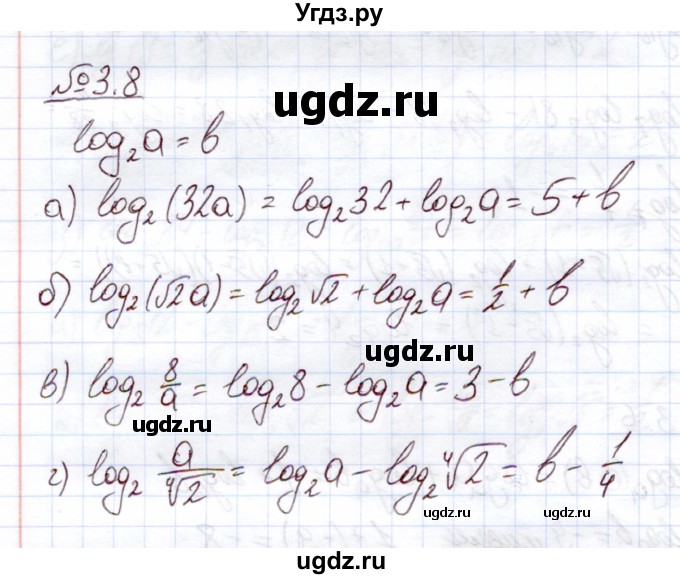 Угдз.ру
№3.8
ugdz.ru
log₂a = b
а) log₂(32a) = log₂32 + log₂a = 5 + b
б) log₂(√2a) = log₂√2 + log₂a = 1/2 + b
ugdz.ru
в) log₂ 8/a = log₂8 - log₂a = 3 - b
ugdz.ru
г) log₂ a/∜2 = log₂a - log₂∜2 = b - 1/4
ugdz.ru ugdz.ru
ugdz.ru